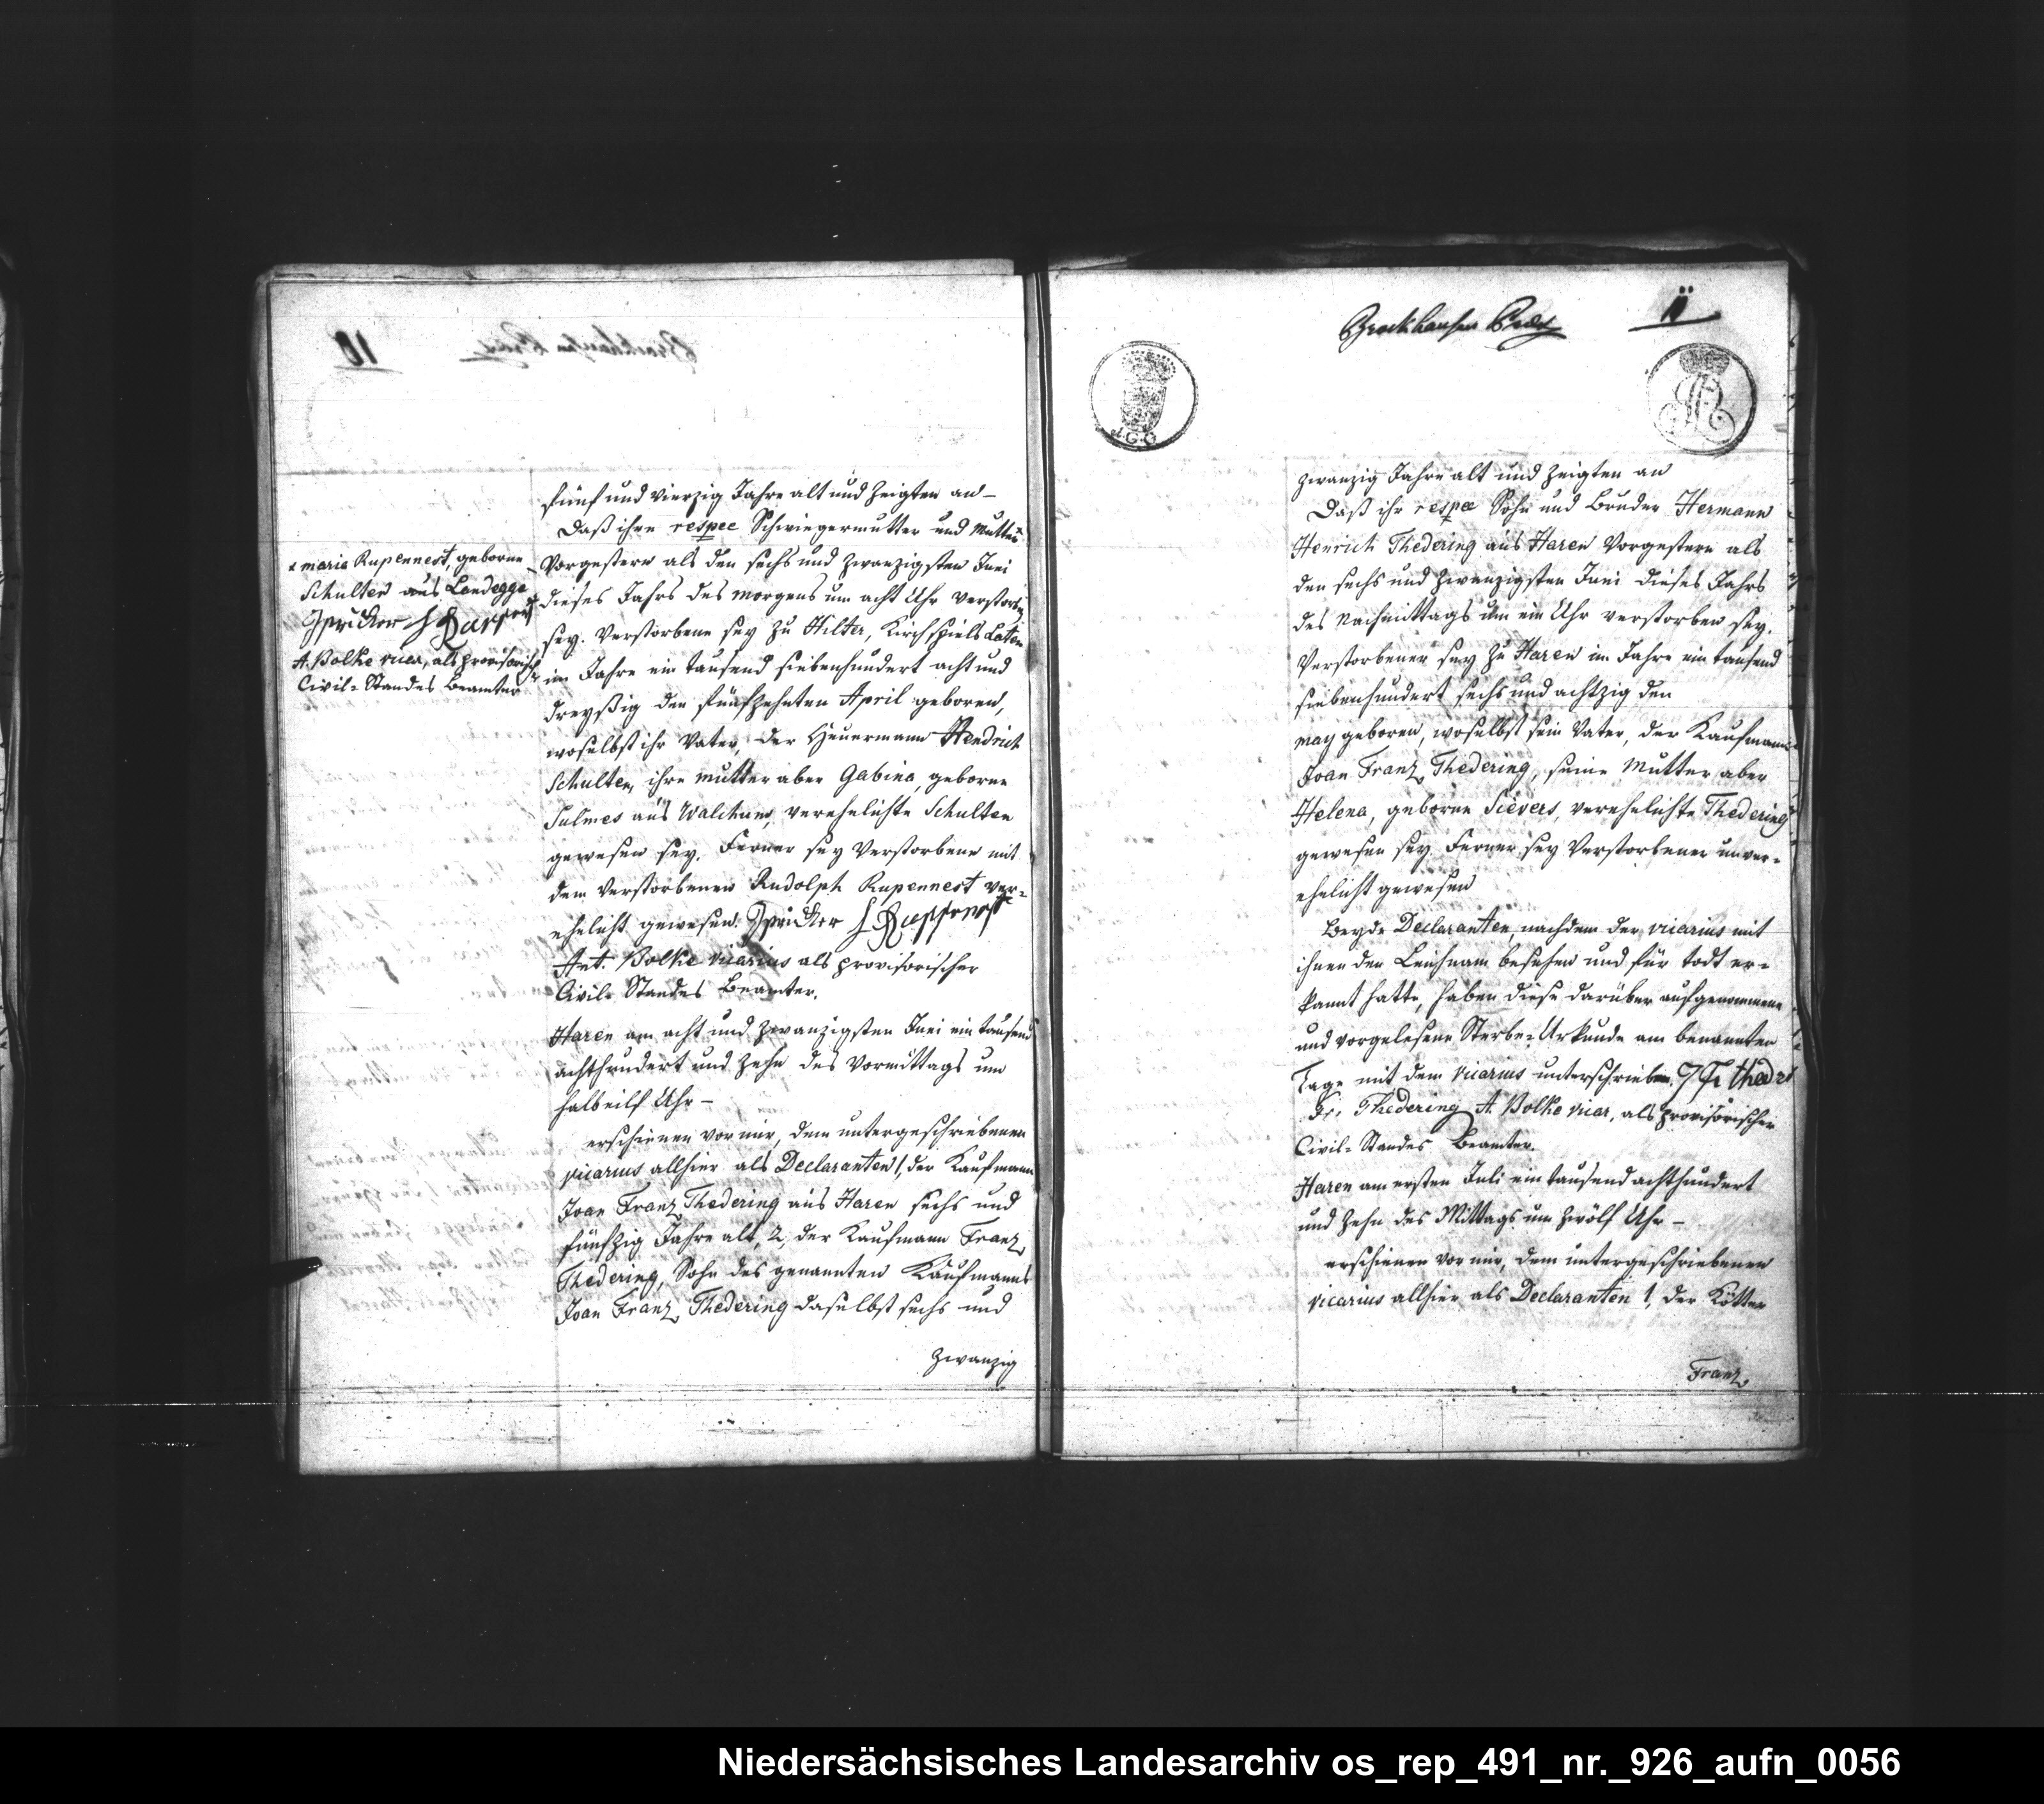 fünf und vierzig Jahre alt und zeigten an –
Daß ihre respee Schwiegermutter und Mutter
x maria Rupennest, geborne
Schulten aus Landegge
A. Bolke vicar, als provisorischer
Civil-Standes Beamter
Vorgestern als den sechs und zwanzigsten Juni
dieses Jahrs des morgens um acht Uhr verstorben
sey. Verstorbene sey zu Hilter, Kirchspiels Laten
im Jahre ein tausend siebenhundert acht und
dreyßig den fünfzehnten April geboren,
woselbst ihr Vater, der Heuermann Hendrich
Schulten, ihre mutter aber Gabina, geborne
Tulmes aus Walchum, verehelichte Schulten
gewesen sey. Ferner sey Verstorbene mit
dem Verstorbenen Rudolph Rupennest ver-
ehelicht gewesen. H Ruppennest
Ant. Bolke vicarius als provisorischer
Civil-Standes Beamter.
Haren am acht und zwanzigsten Juni ein tausend
achthundert und zehn des Vormittags um
halb eilf Uhr –
erschienen vor mir, dem untergeschriebenen
vicarius allhier als Declaranten 1, der Kaufmann
Joan Franz Thedering aus Haren sechs und
fünfzig Jahre alt, 2, der Kaufmann Franz
Thedering, Sohn des genannten Kaufmanns
Joan Franz Thedering daselbst sechs und
zwanzig
11
zwanzig Jahre alt und zeigten an
Daß ihr respee Sohn und Bruder Hermann
Henrich Thedering aus Haren Vorgestern als
den sechs und zwanzigsten Juni dieses Jahrs
des Nachmittags um ein Uhr verstorben sey.
Verstorbener sey zu Haren im Jahre ein tausend
siebenhundert sechs und achtzig den
may geboren, woselbst sein Vater, der Kaufmann
Joan Franz Thedering, seine Mutter aber
Helena, geborne Sievers, verehelichte Thedering
gewesen sey. Ferner sey Verstorbener unver-
ehelicht gewesen
Beyde Declaranten, nachdem der vicarius mit
ihnen den Leichnam besehen und für todt er-
kannt hatte, haben diese darüber aufgenommene
und vorgelesene Sterbe-Urkunde am benannten
Tage mit dem vicarius unterschrieben. J Fr thedr
Fr. Thedering A. Bolke vicar, als provisorischer
Civil-Standes Beamter.
Haren am ersten Juli ein tausend achthundert
und zehn des Mittags um zwölf Uhr –
erschienen vor mir, dem untergeschriebenen
vicarius allhier als Declaranten 1, der Kötter
Franz
Niedersächsisches Landesarchiv os_rep_491_nr._926_aufn_0056